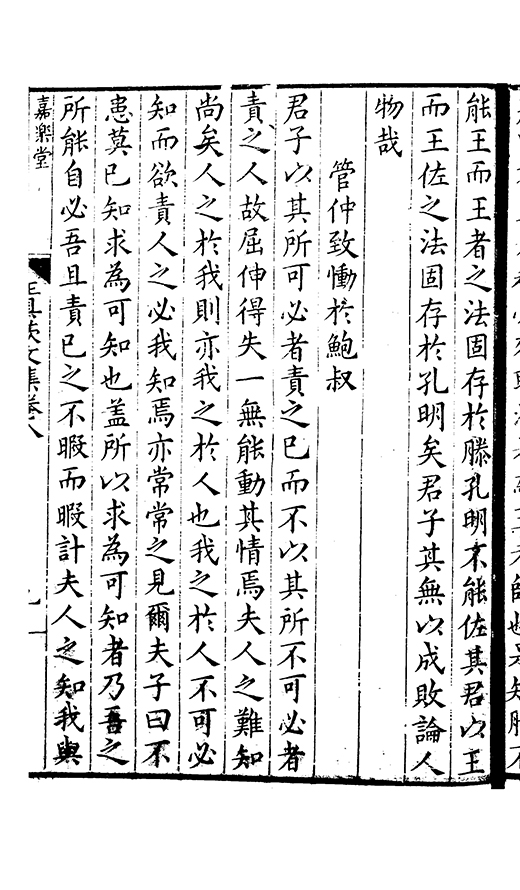 能王而王者之法固存於滕孔明不能佐其君以王
而王佐之法固存於孔明矣君子其無以成敗論人
物哉
管仲致慟於鮑叔
君子以其所可必者責之已而不以其所不可必者
責之人故屈伸得失一無能動其情焉夫人之難知
尚矣人之於我則亦我之於人也我之於人不可必
知而欲責人之必我知焉亦常常之見爾夫子曰不
患莫已知求為可知也盖所以求為可知者乃吾之
所能自必吾且責已之不暇而暇計夫人之知我與
嘉樂堂
文集卷八
九